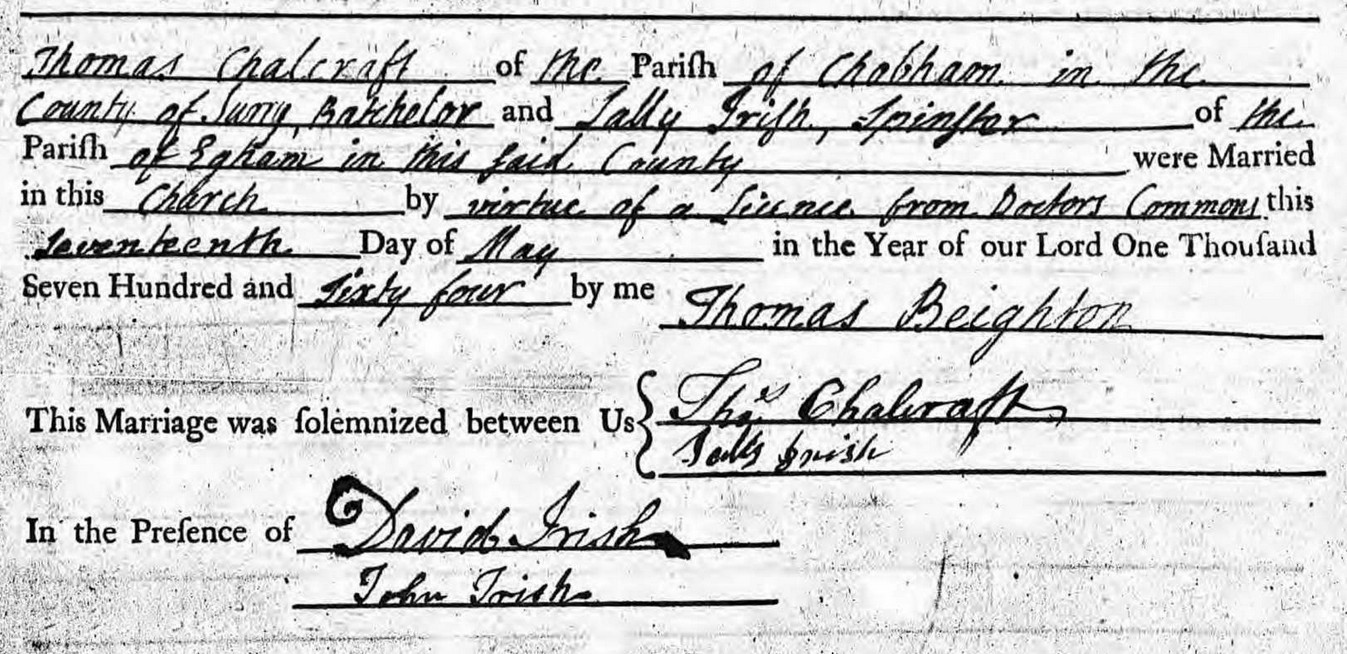 Thomas Chalcraft of the Pariſh of Chobham in the
County of Surry, Batchelor and Sally Irish, Spinster of the
Pariſh of Egham in this said County were Married
in this Church by virtue of a Licence from Doctors Commons this
Seventeenth Day of May in the Year of our Lord One Thouſand
Seven Hundred and Sixty four by me Thomas Beighton
This Marriage was ſolemnized between Us { Thos Chalcraft
Sally Irish
In the Preſence of David Irish
John Irish